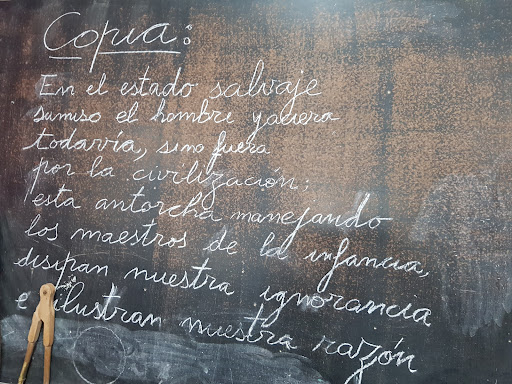 Copia:
En el estado salvaje
sumiso el hombre yaciera
todavía, sino fuera
por la civilización;
esta antorcha manejando
los maestros de la infancia,
disipan nuestra ignorancia
e ilustran nuestra razón